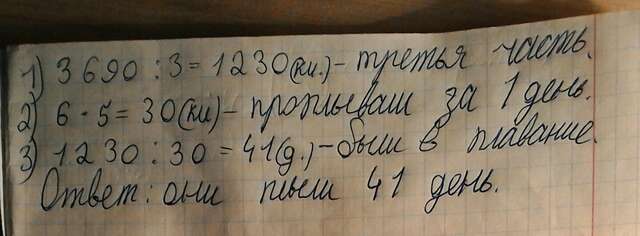 1) 3 690 : 3 = 1 2 3 0 (км.) - третья часть.
2) 6 · 5 = 30 (км) - проплывали за 1 день.
3) 1 2 3 0 : 30 = 41 (д.) - были в плавание.
Ответ: они плыли 41 день.